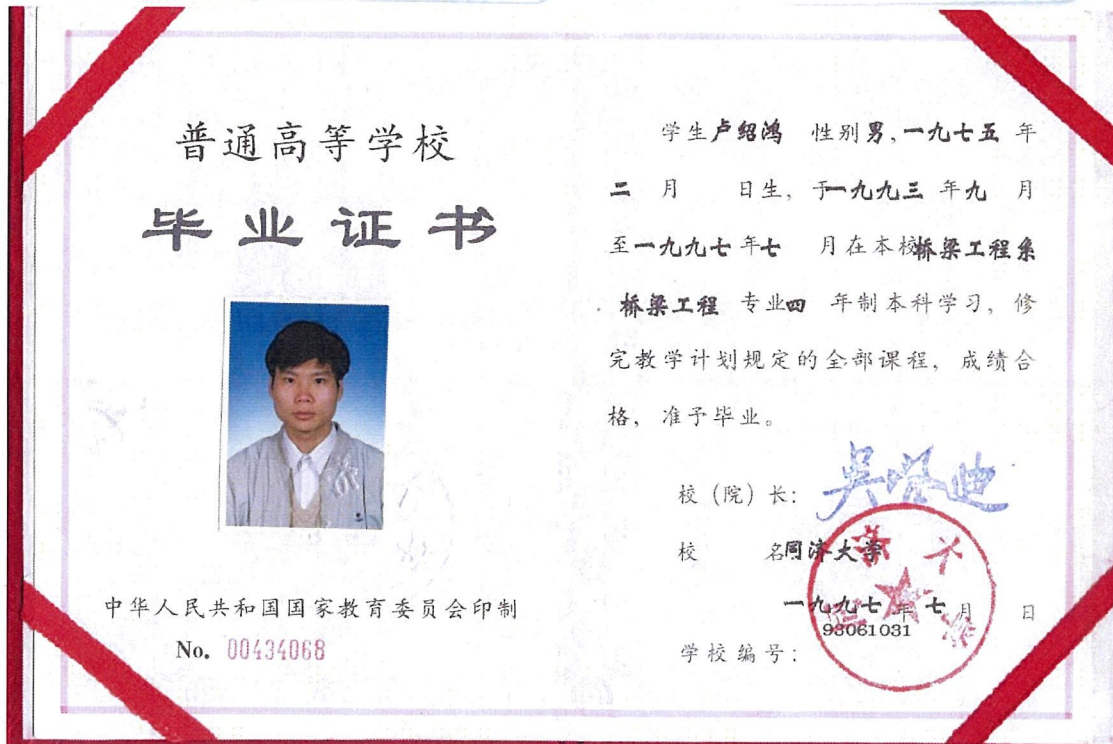 普通高等学校
毕业证书
中华人民共和国国家教育委员会印制
No. 00434068
学生卢绍鸿 性别男,一九七五 年
二 月 日生, 于一九九三 年九 月
至一九九七 年七 月在本校桥梁工程系
桥梁工程 专业四 年制本科学习, 修
完教学计划规定的全部课程, 成绩合
格, 准予毕业。
校 (院) 长: 吴启迪
校 名同济大学
一九九七 年 七 月 日
93061031
学校编号: